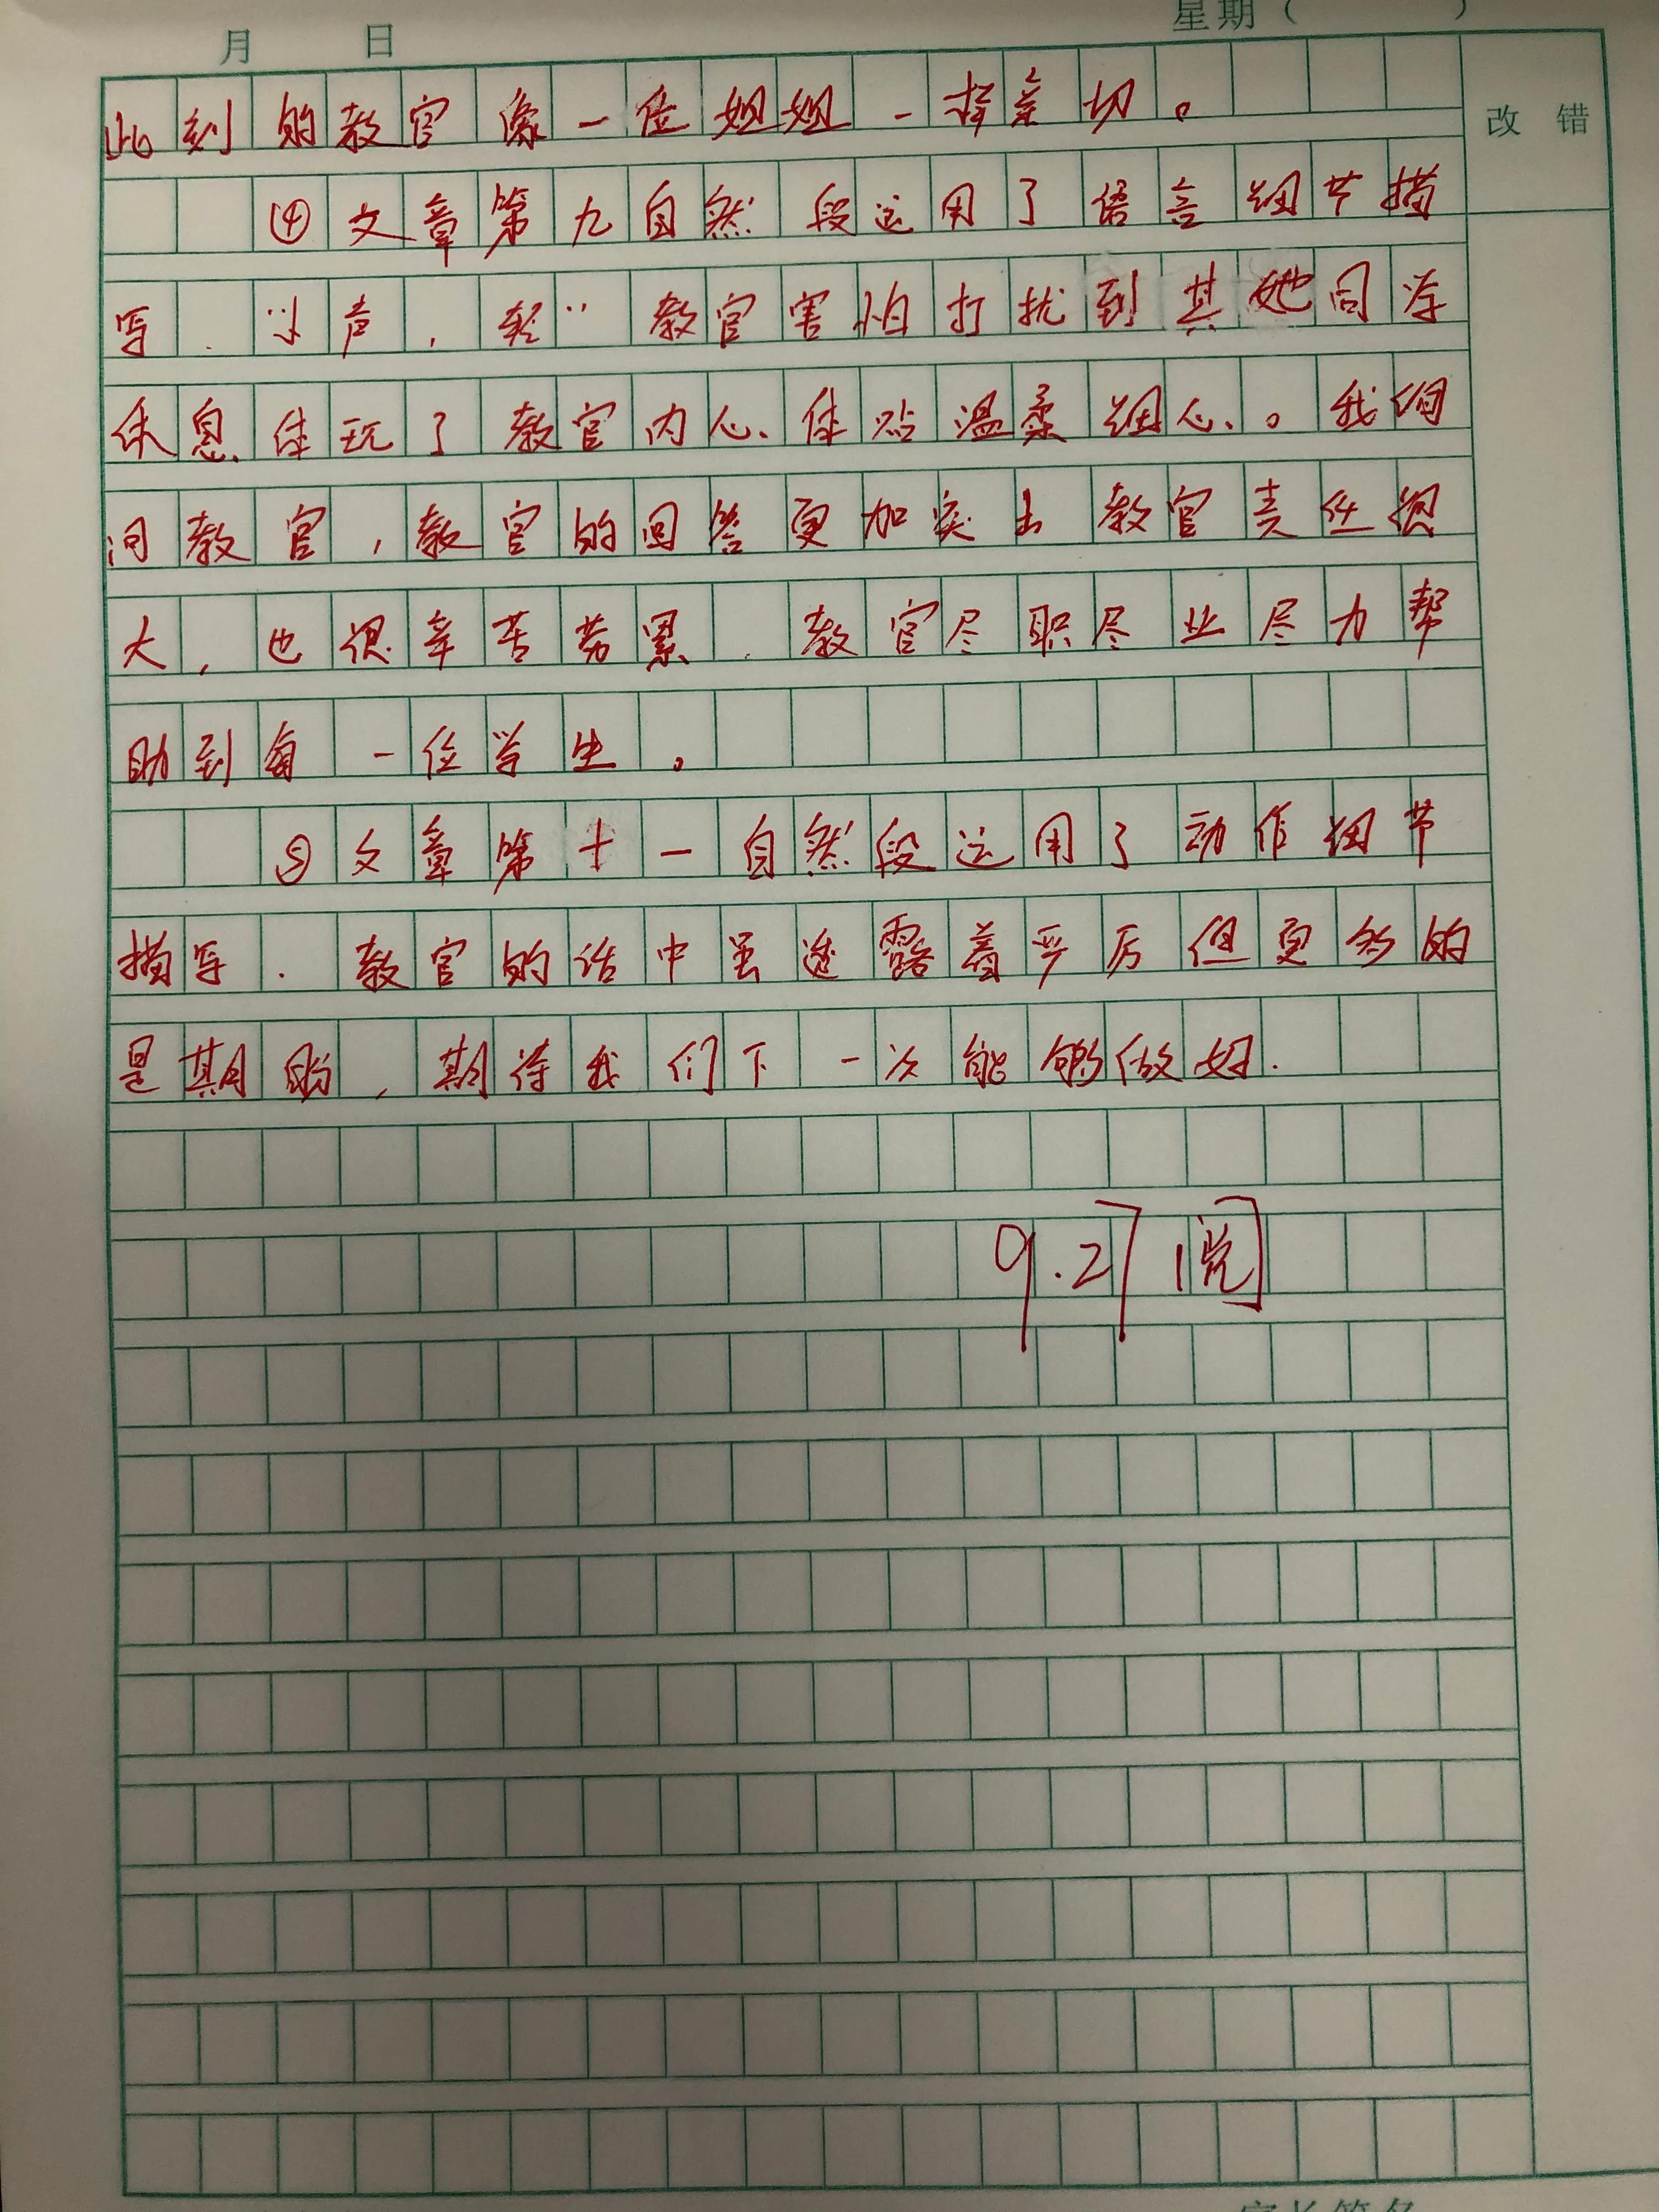 月 日 星期（ ）
改 错
此刻的教官像一位姐姐一样亲切。
④文章第九自然段运用了语言细节描
写．“小声，轻”教官害怕打扰到其她同学
休息体现了教官内心体贴温柔细心。我们
问教官，教官的回答更加突出教官责任很
大，也很辛苦劳累．教官尽职尽业尽力帮
助到每一位学生。
⑤文章第十一自然段运用了动作细节
描写．教官的话中虽透露着严厉但更多的
是期盼，期待我们下一次能够做好．
9.27 阅
家长签名